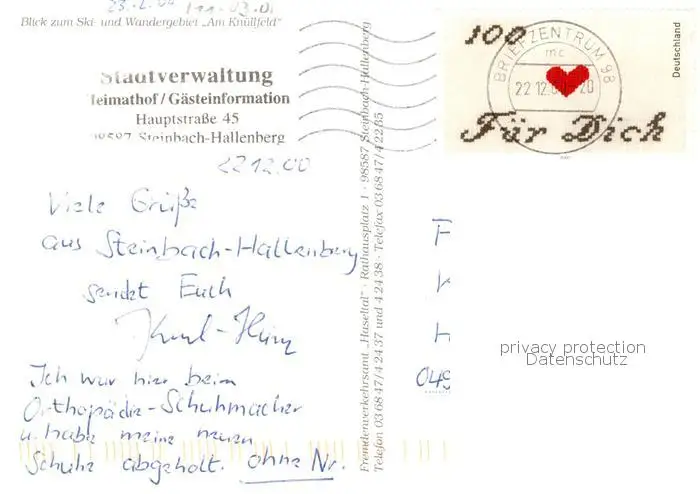 23.2.00
Blick zum Ski- und Wandergebiet „Am Knüllfeld"
Stadtverwaltung
Heimathof / Gästeinformation
Hauptstraße 45
98587 Steinbach-Hallenberg
22 12.00
Viele Grüße
aus Steinbach-Hallenberg
sendet Euch
Karl-Heinz
Ich war hier beim
Orthopädie-Schuhmacher
u. habe meine neuen
Schuhe abgeholt. ohne Nr.
Fremdenverkehrsamt „Haseltal" · Rathausplatz 1 · 98587 Steinbach-Hallenberg
Telefon 03 68 47 / 4 24 37 und 4 24 38 · Telefax 03 68 47 / 4 22 35
100
Für Dich
Deutschland
BRIEFZENTRUM 98
mc
22 12 -20
F
K
H
049
privacy protection
Datenschutz